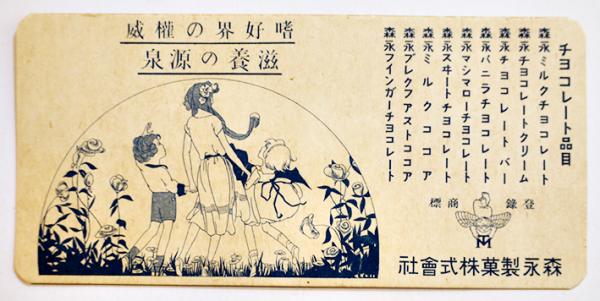 嗜好界の權威
滋養の源泉
チヨコレート品目
森永ミルクチヨコレート
森永チヨコレートクリーム
森永チヨコレートバー
森永バニラチヨコレート
森永マシマローチヨコレート
森永スヰートチヨコレート
森永ミルクココア
森永ブレクフアストココア
森永フインガーチヨコレート
登錄商標
TM
森永製菓株式會社